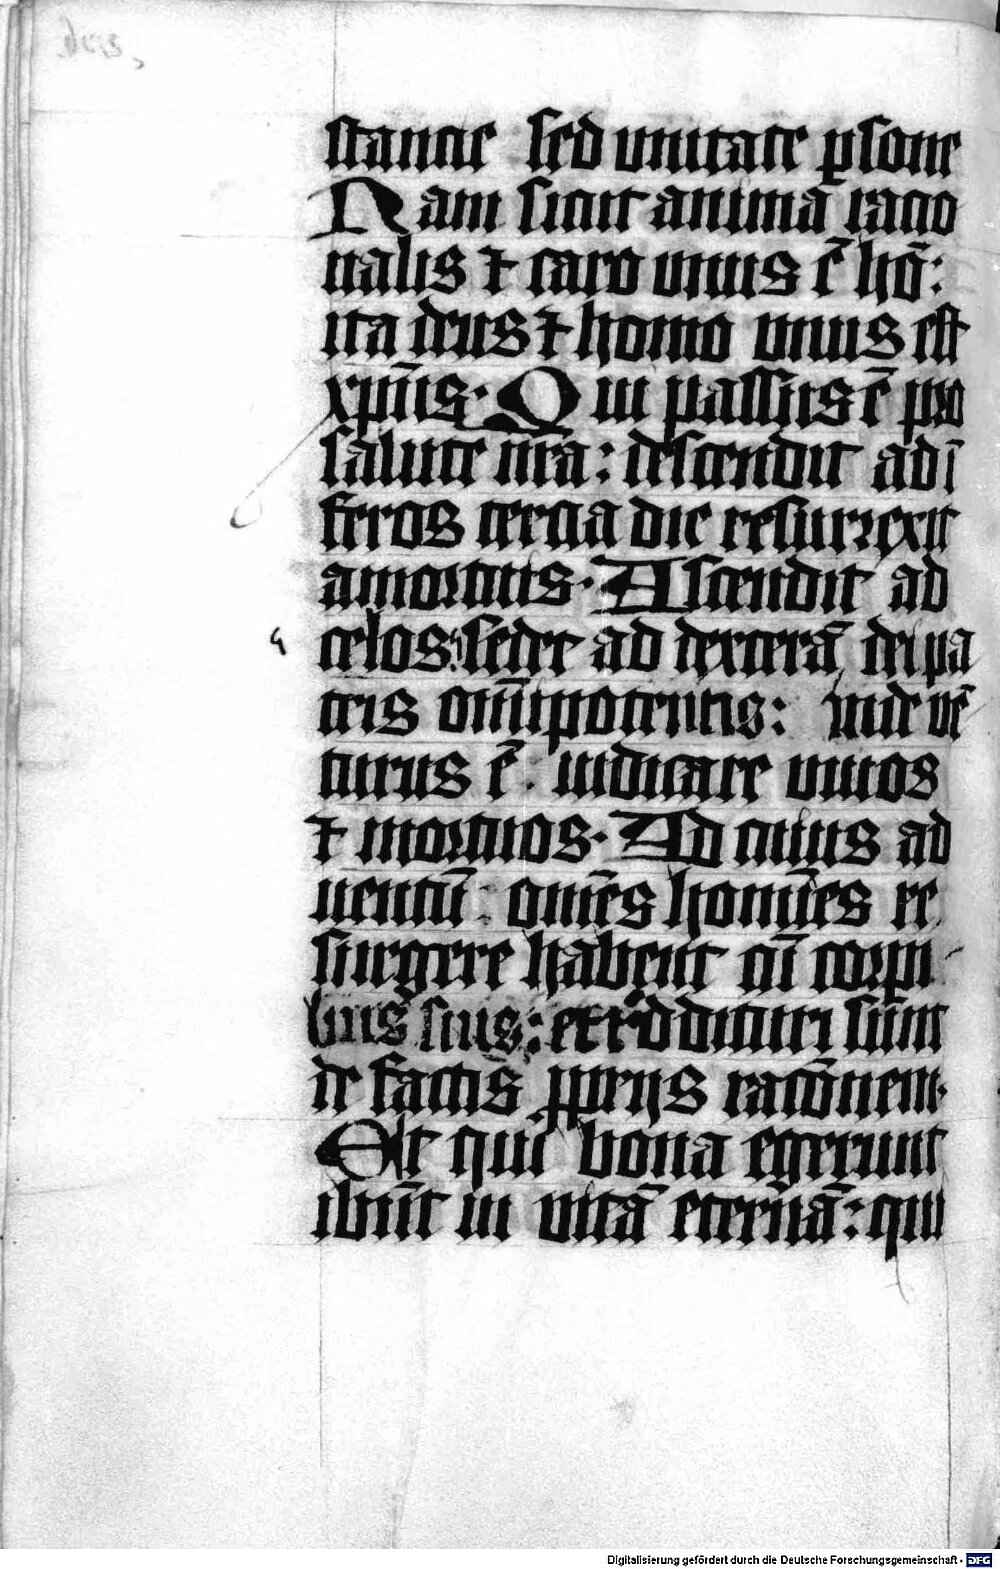 stancie sed unitate ꝑsone
Nam sicut anima racio
nalis ⁊ caro unus ē hō:
ita deus ⁊ homo unus est
xpūs. Qui passus ē pro
salute nr̄a: descendit ad ī
feros tercia die resurrexit
a mortuis. Ascendit ad
celos: sedet ad dexterā dei pa
tris om̄ipotentis: inde vē
turus ē iudicare uiuos
⁊ mortuos. Ad cuius ad
uentū: om̄es homīes re
surgere habent cū corpi
bus suis: et r̄ddituri sunt
de factis ꝓprijs racōnem.
Et qui bona egerunt
ibūt in uitā eternā: qui
Digitalisierung gefördert durch die Deutsche Forschungsgemeinschaft - DFG